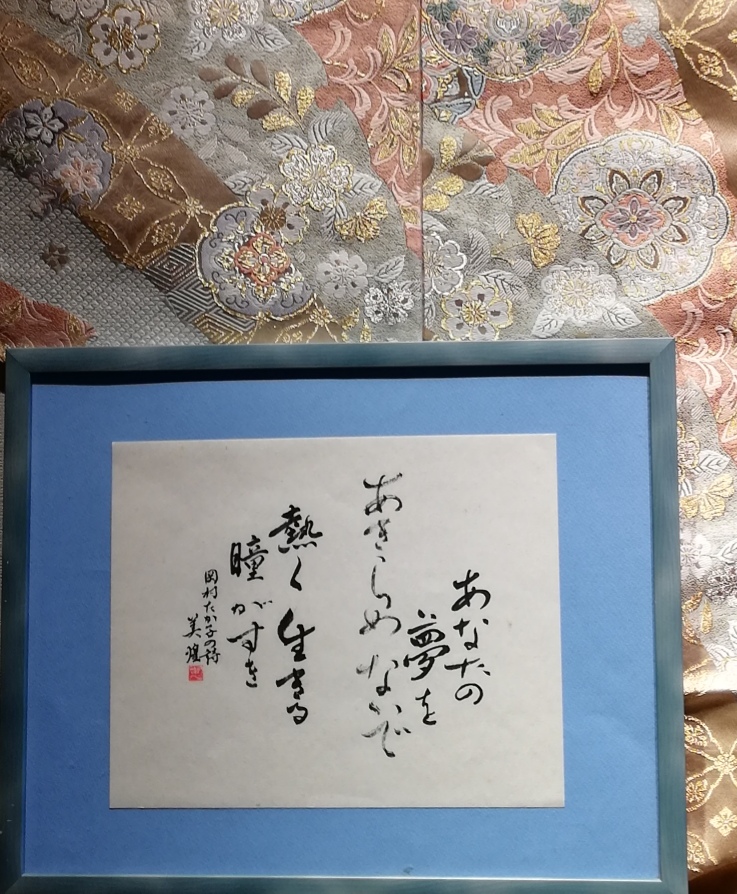 あなたの
夢を
あきらめないで
熱く生きる
瞳がすき
岡村たか子の詩